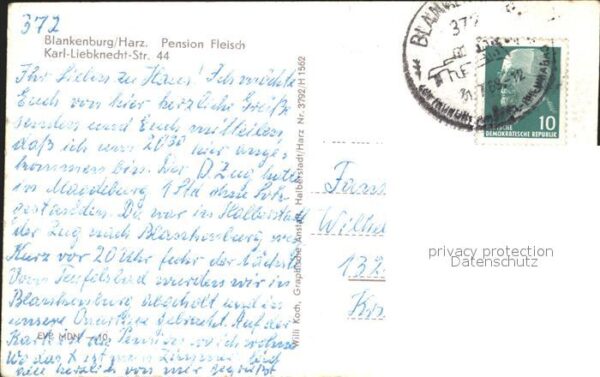 372
Blankenburg/Harz. Pension Fleisch
Karl-Liebknecht-Str. 44
Ihr Lieben zu Haus! Ich möchte
Euch von hier herzliche Grüße
senden und Euch mitteilen,
daß ich um 20³⁰ hier ange-
kommen bin. Der D Zug hatte
in Magdeburg 1 Std ohne Lok
gestanden. Da war in Halberstadt
der Zug nach Blankenburg weg
Kurz vor 20 Uhr fuhr der nächste
Vom Teufelsbad wurden wir in
Blankenburg abgeholt und in
unsere Quartiere gebracht. Auf der
Karte ist die Pension, wo ich wohne
Wo das X ist mein Zimmer. Seid
alle herzlich von mir gegrüßt
EVP MDN
Willi Koch, Graphische Anstalt, Halberstadt/Harz Nr. 3792/H 1562
BLANKEN
372
10
DEUTSCHE
DEMOKRATISCHE REPUBLIK
Fam
Wilhe
132
privacy protection
Datenschutz